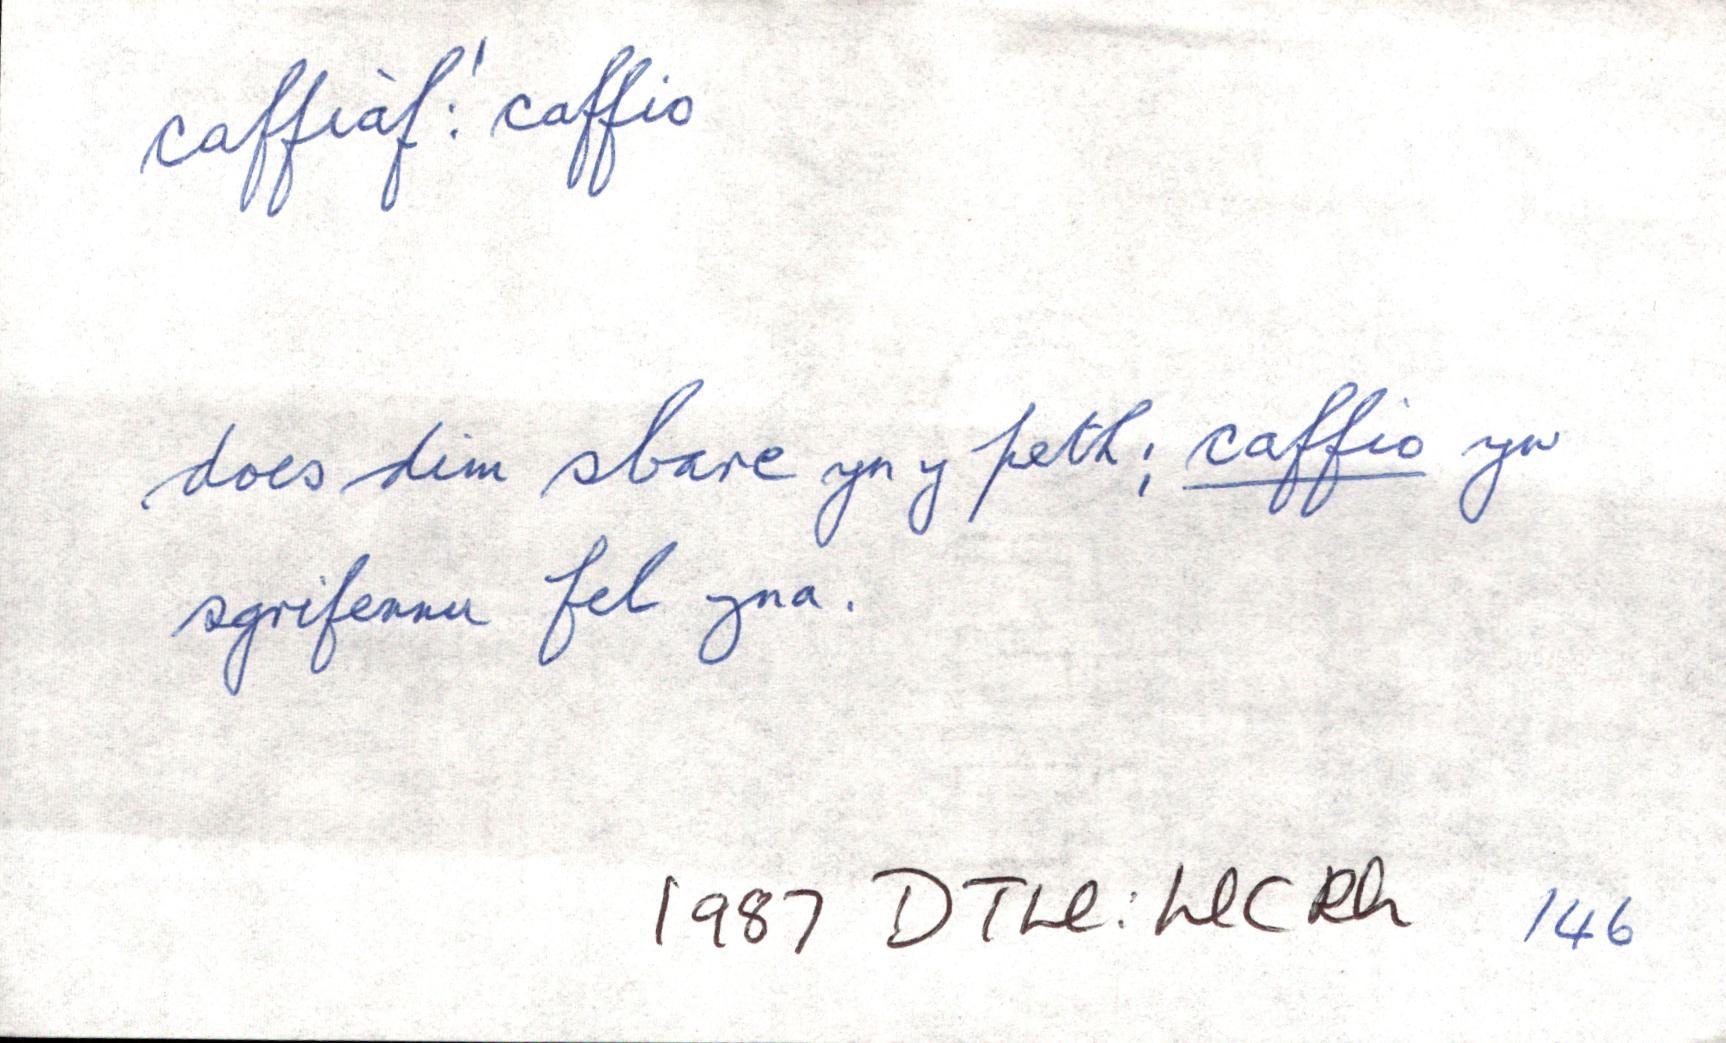 caffiàf:¹ caffio
does dim sbare yn y peth; caffio yw
sgrifennu fel yna.
1987 DTLl: LlCRh 146